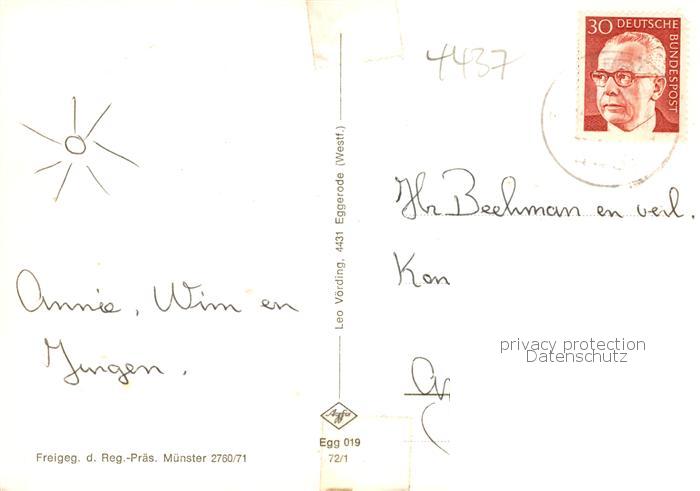 4437
30 DEUTSCHE
BUNDESPOST
Hr Beekman en verl.
Kon
Annie, Wim en
Jurgen.
privacy protection
Datenschutz
Leo Vörding, 4431 Eggerode (Westf.)
Agfa
Egg 019
72/1
Freigeg. d. Reg.-Präs. Münster 2760/71